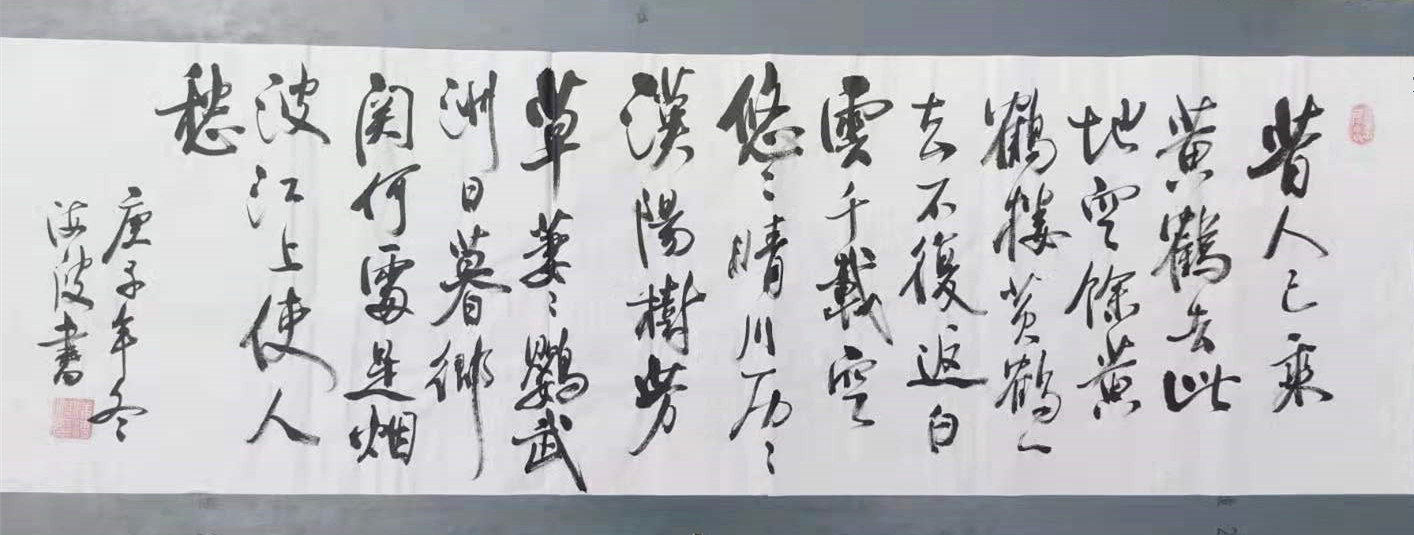 昔人已乘
黄鶴去此
地空餘黄
鶴樓黄鶴一
去不復返白
雲千載空
悠〻晴川历〻
漢陽樹芳
草萋〻鸚武
洲日暮鄉
関何處是烟
波江上使人
愁
庚子年冬
海波書